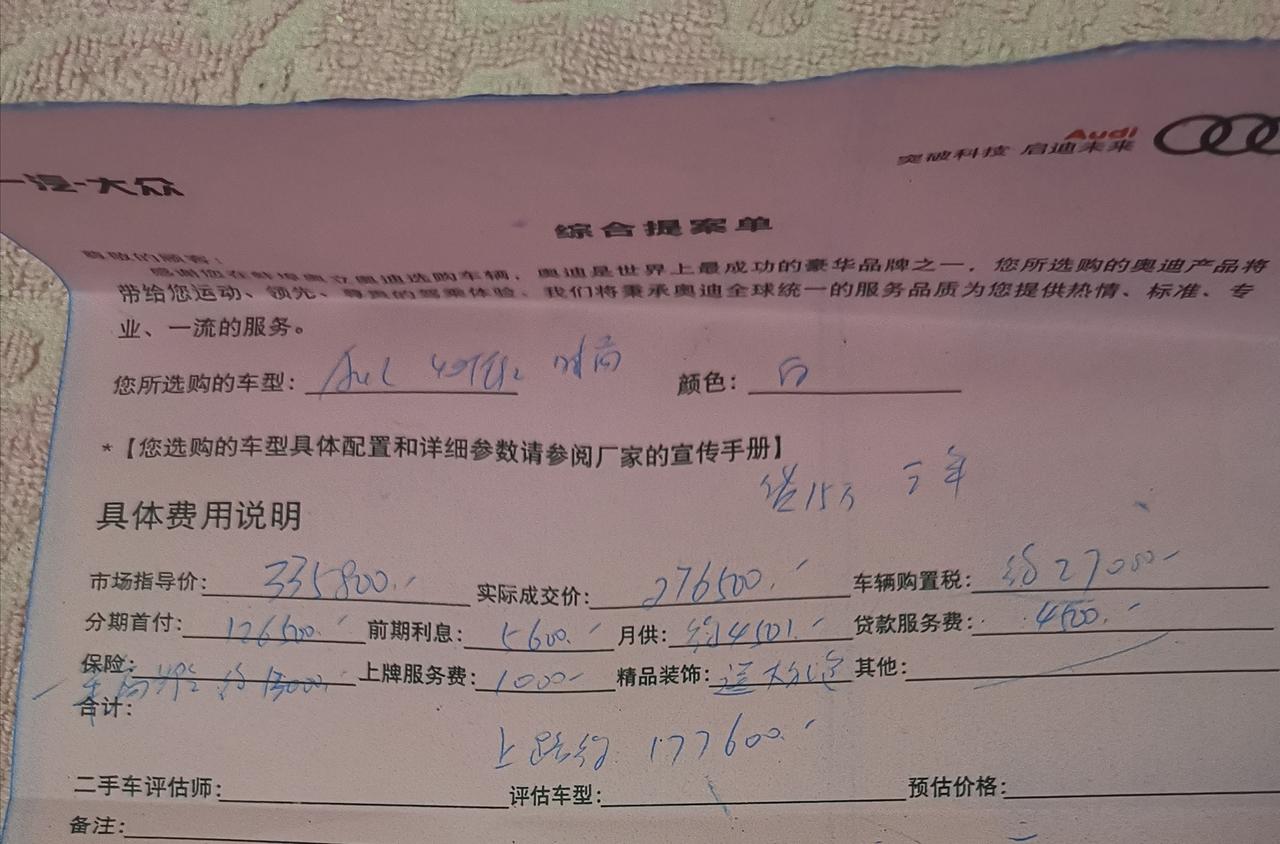 Audi
突破科技 启迪未来
一汽-大众
综合提案单
尊敬的顾客：
感谢您在蚌埠奥立奥迪选购车辆，奥迪是世界上最成功的豪华品牌之一，您所选购的奥迪产品将
带给您运动、领先、尊贵的驾乘体验、我们将秉承奥迪全球统一的服务品质为您提供热情、标准、专
业、一流的服务。
您所选购的车型： A4L 40TFSI 时尚 颜色： 白
*【您选购的车型具体配置和详细参数请参阅厂家的宣传手册】
贷15万 三年
具体费用说明
市场指导价： 335800.- 实际成交价： 276500.- 车辆购置税： 约27000-
分期首付： 126500.- 前期利息： 5600.- 月供： 约4501.- 贷款服务费： 4500.-
保险： 约13000. 上牌服务费： 1000- 精品装饰： 送大礼包 其他：
合计：
上路约 177600.-
二手车评估师： 评估车型： 预估价格：
备注：